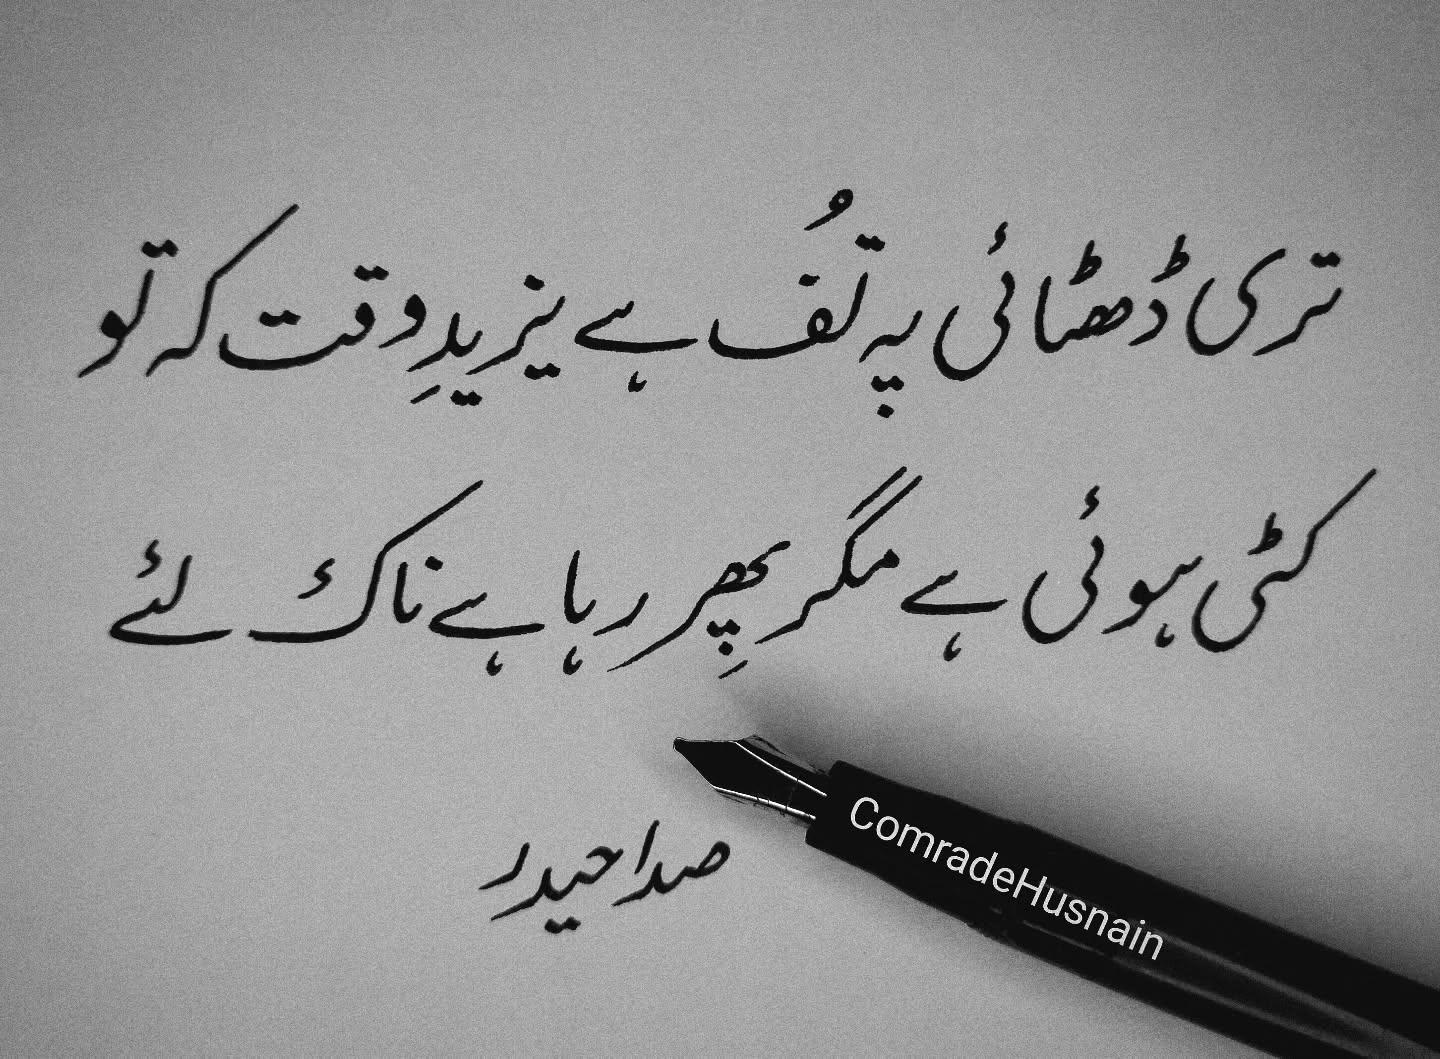 تری ڈھٹائی پہ تُف ہے یزیدِ وقت کہ تو
کٹی ہوئی ہے مگر پھِر رہا ہے ناک لئے
صدا حیدر
ComradeHusnain